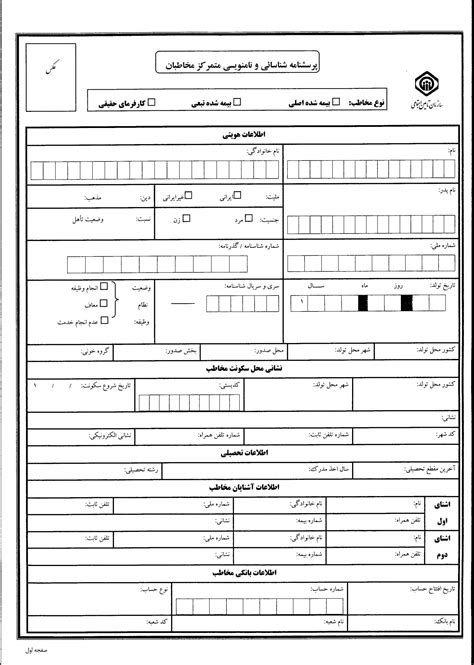 پرسشنامه شناسائی و نامنویسی متمرکز مخاطبان
عکس
سازمان تأمین اجتماعی
نوع مخاطب: بیمه شده اصلی بیمه شده تبعی کارفرمای حقیقی
اطلاعات هویتی
نام: نام خانوادگی:
نام پدر: ملیت: ایرانی غیرایرانی دین: مذهب:
جنسیت: مرد زن نسبت: وضعیت تأهل
شماره ملی: شماره شناسنامه / گذرنامه:
تاریخ تولد: روز ماه سال سری و سریال شناسنامه: وضعیت انجام وظیفه
۱ نظام معاف
وظیفه: عدم انجام خدمت
کشور محل تولد: شهر محل تولد: محل صدور: بخش صدور: گروه خونی:
نشانی محل سکونت مخاطب
کشور محل تولد: شهر محل تولد: کدپستی: تاریخ شروع سکونت: / / ۱
نشانی:
کد شهر: شماره تلفن همراه: نشانی الکترونیکی: تلفن ثابت:
اطلاعات تحصیلی
آخرین مقطع تحصیلی: سال اخذ مدرک: رشته تحصیلی:
اطلاعات آشنایان مخاطب
اشنای نام: نام خانوادگی: شماره ملی: تلفن ثابت:
اول تلفن همراه: شماره بیمه: نشانی:
اشنای نام: نام خانوادگی: شماره ملی: تلفن ثابت:
دوم تلفن همراه: شماره بیمه: نشانی:
اطلاعات بانکی مخاطب
تاریخ افتتاح حساب: شماره حساب: نوع حساب:
نام بانک: نام شعبه: کد شعبه:
صفحه اول